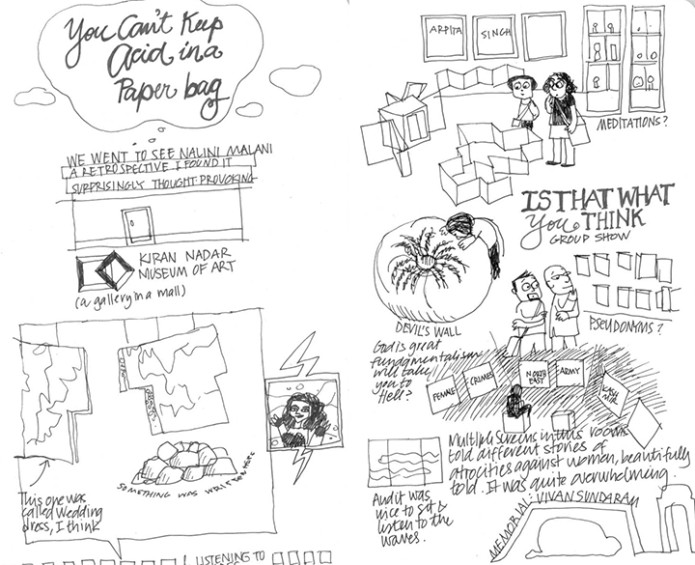 You Can't Keep
Acid in a
Paper bag
WE WENT TO SEE NALINI MALANI
A RETROSPECTIVE I FOUND IT
SURPRISINGLY THOUGHT PROVOKING
KIRAN NADAR
MUSEUM OF ART
(a gallery in a mall)
This one was
called Wedding
dress, I think
SOMETHING WAS WRITTEN HERE
LISTENING TO
ARPITA
SINGH
MEDITATIONS?
IS THAT WHAT
You THINK
GROUP SHOW
DEVIL'S WALL
God is great
fundamentalism
will take
you to
Hell?
PSEUDONYMS?
FEMALE
CRIMES
NORTH
EAST
ARMY
KASH
MIR
Multiple screens in this room
told different stories of
atrocities against women, beautifully
told. It was quite overwhelming.
And it was
nice to sit &
listen to the
waves.
MEMORIAL: VIVAN SUNDARAM